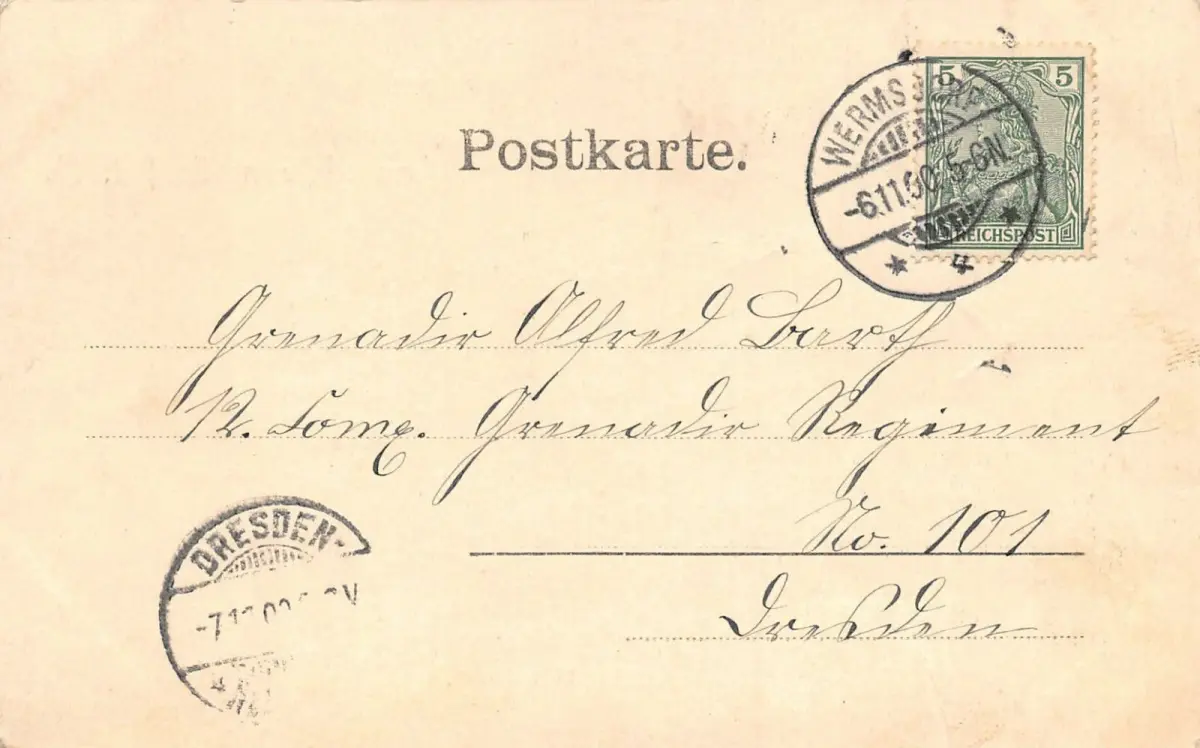 Postkarte.
5 5
REICHSPOST
WERMSDORF
-6.11.00. 5-6N.
* 4 *
Grenadir Alfred Barth
12. Comp. Grenadir Regiment
No. 101
Dresden
DRESDEN-
-7.11.00